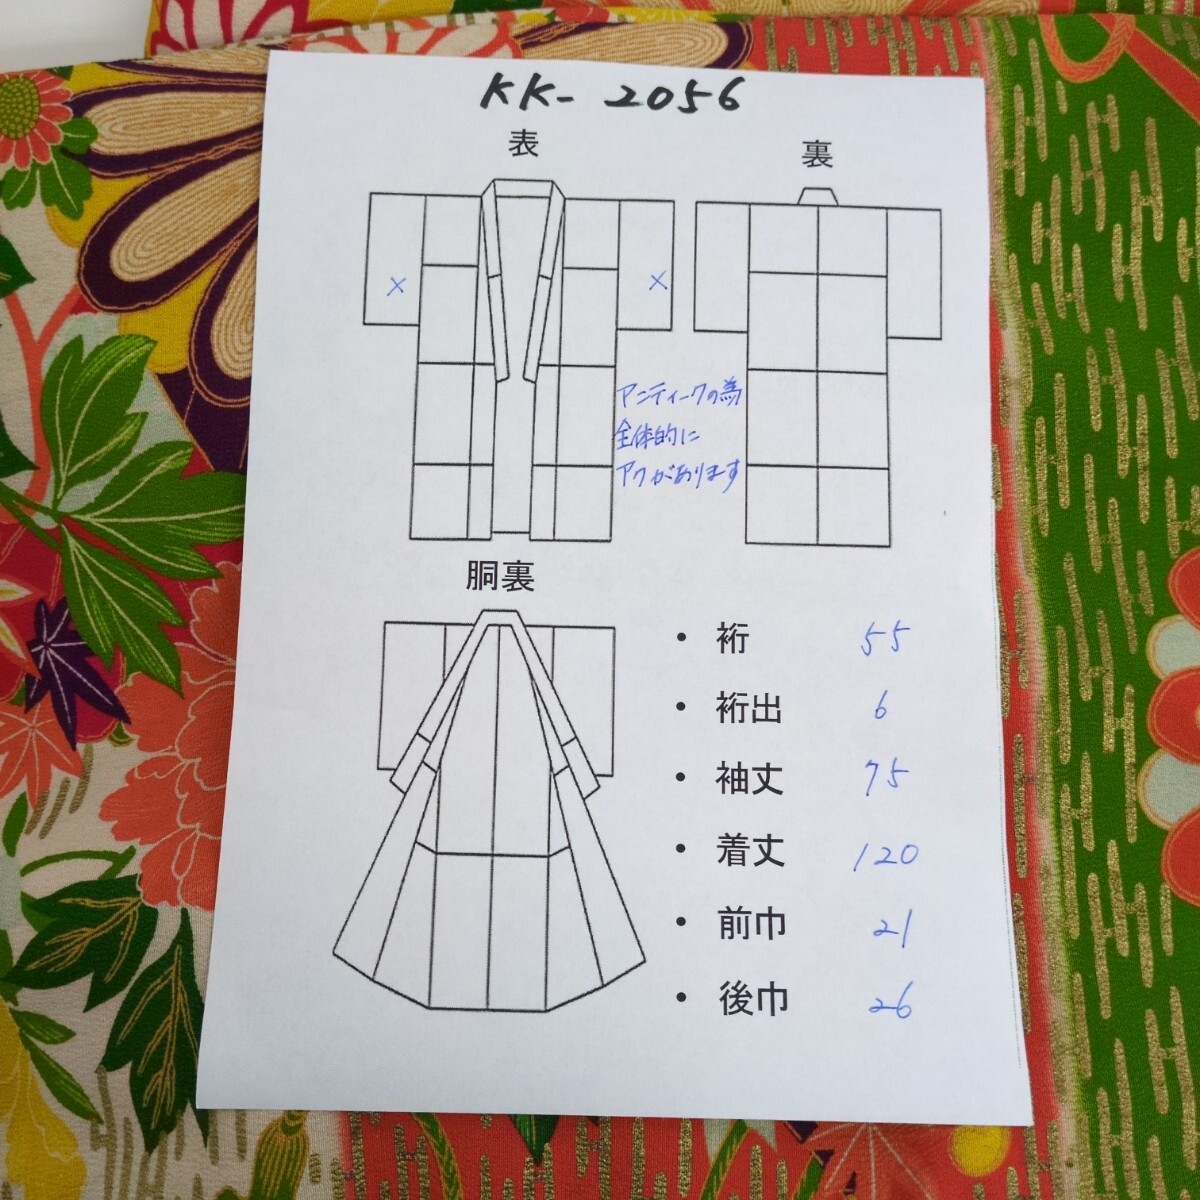 KK- 2056
表
裏
×
×
アンティークの為
全体的に
アクがあります
胴裏
・ 裄 55
・ 裄出 6
・ 袖丈 75
・ 着丈 120
・ 前巾 21
・ 後巾 26